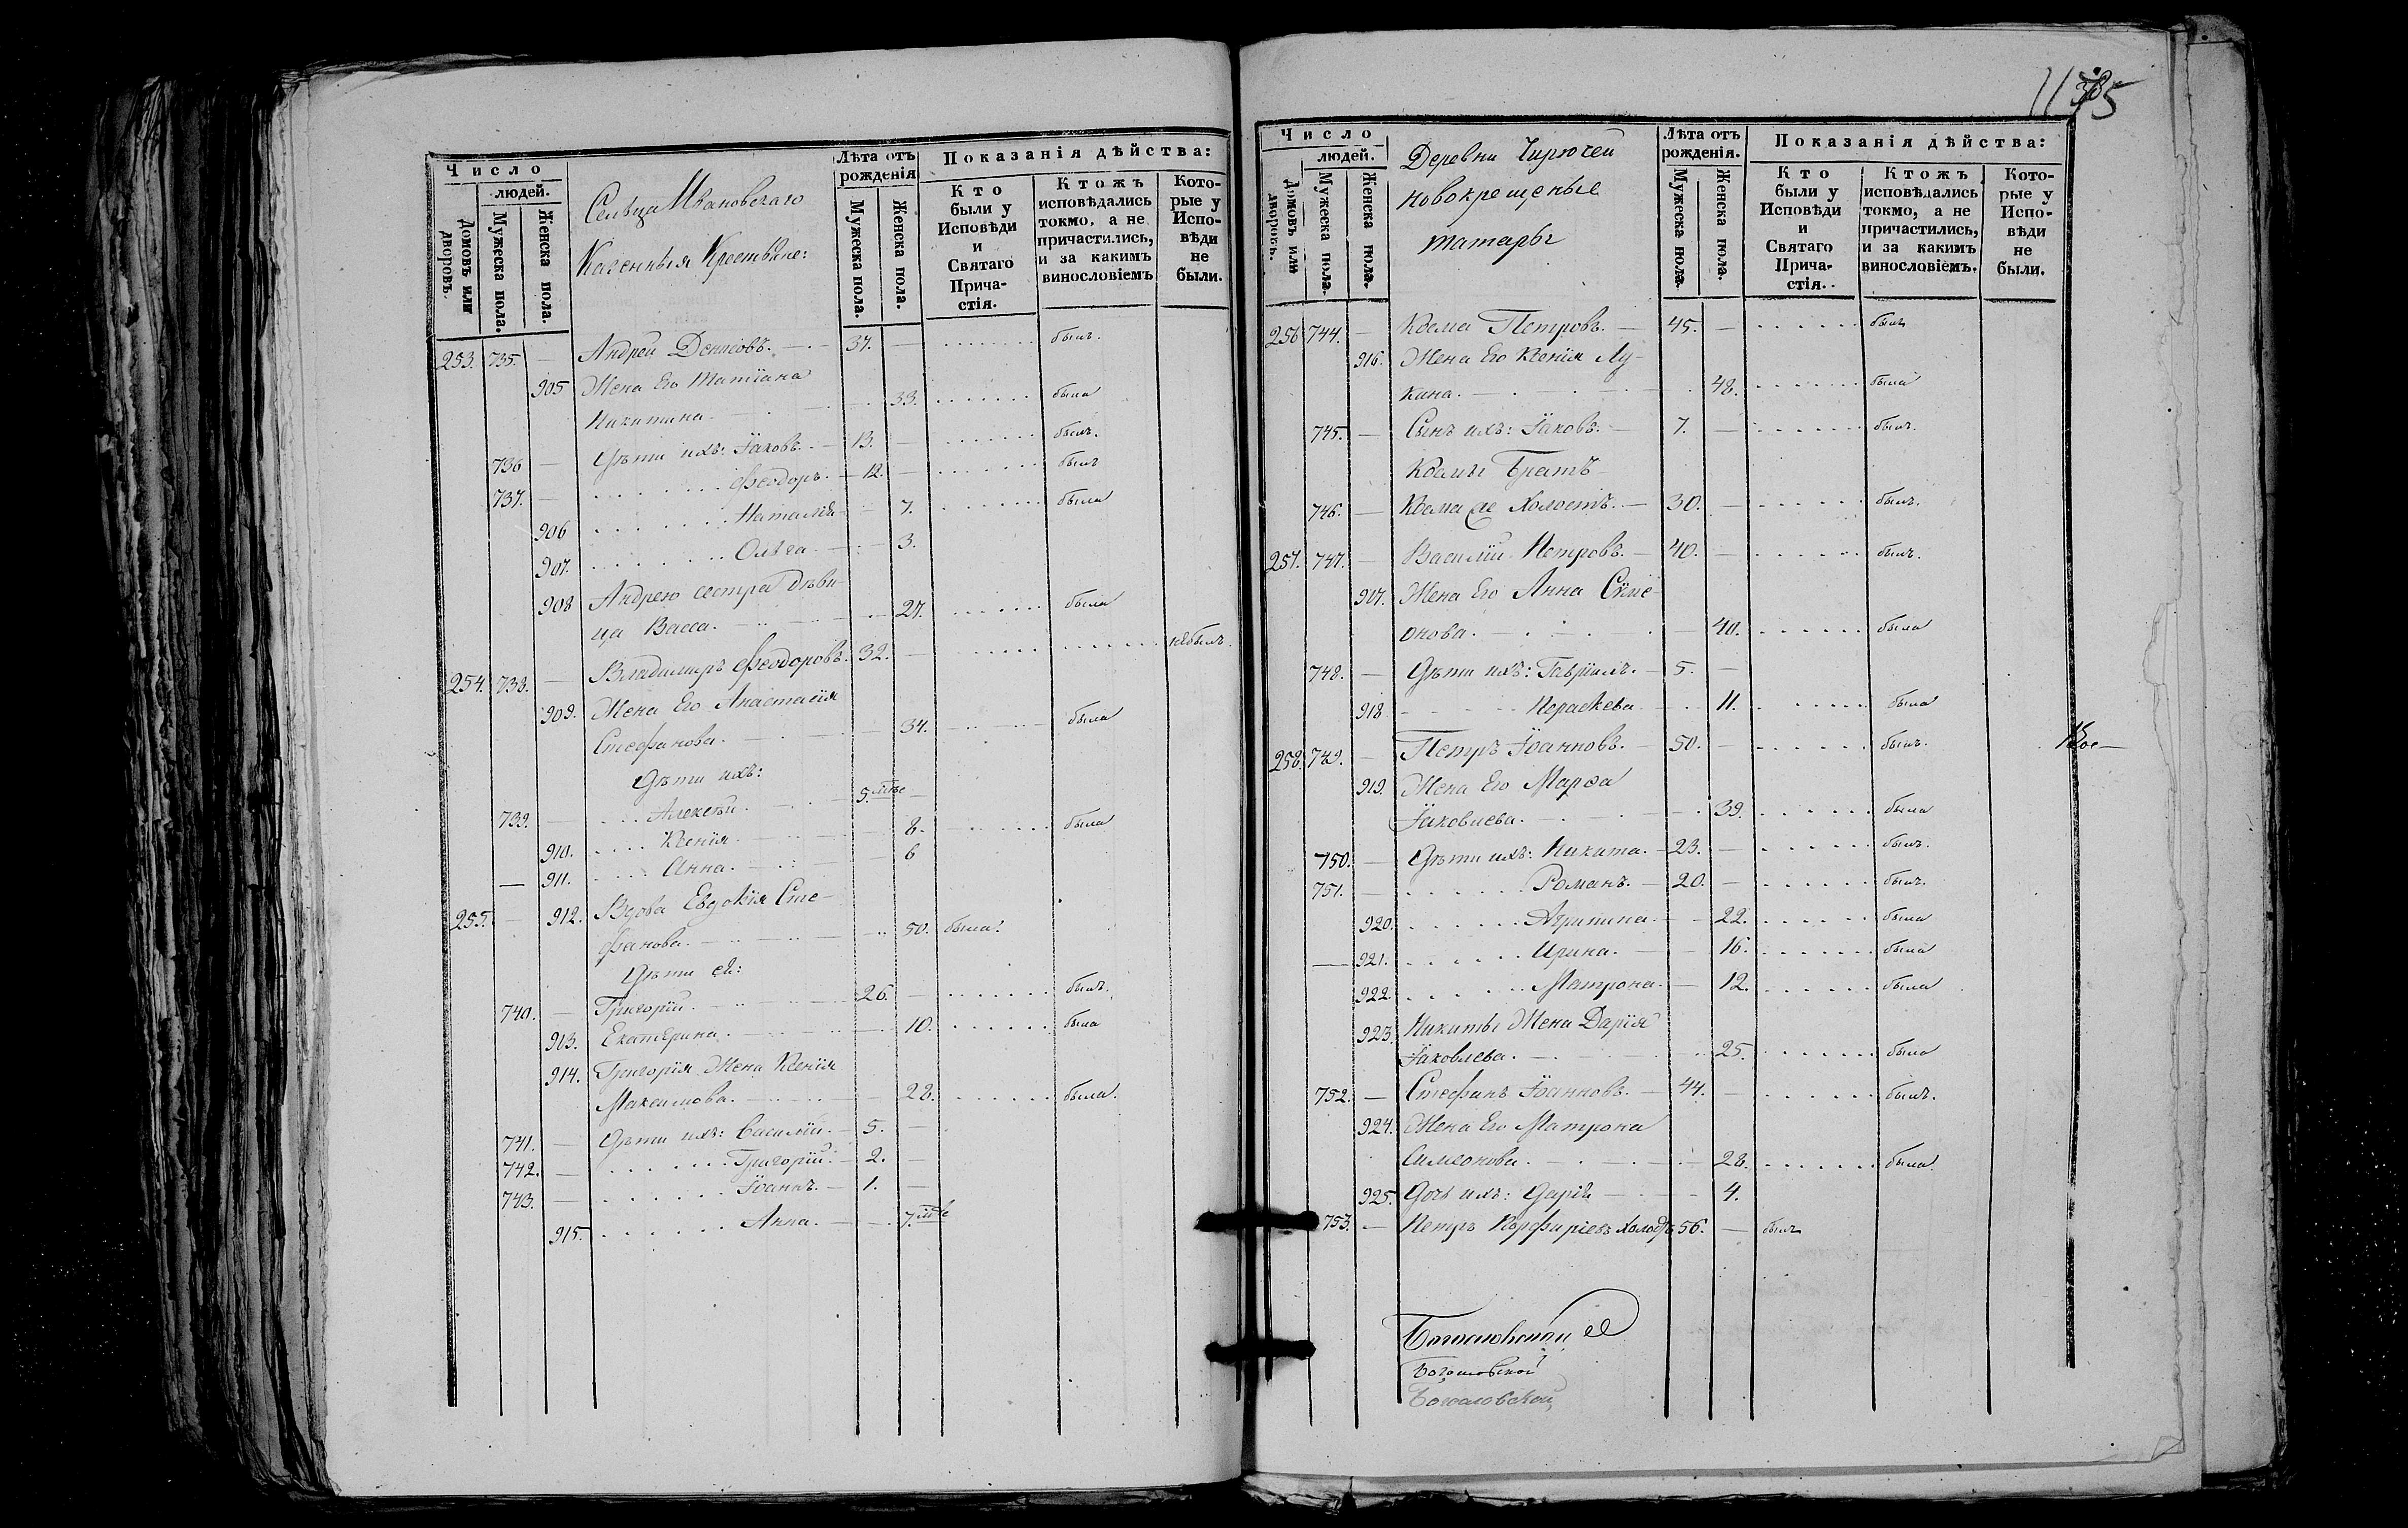 Число
людей.
Домовъ или дворовъ.
Мужеска пола.
Женска пола.
Сельца Ивановскаго
Казенныя Крестьяне:
Лѣта отъ рожденія
Мужеска пола.
Женска пола.
Показанія дѣйства:
Кто были у Исповѣди и Святаго Причастія.
Ктожъ исповѣдались токмо, а не причастились, и за какимъ винословіемъ
Которые у Исповѣди не были.
253. 735. — Андрей Денисовъ. — 37. — былъ.
905 Жена Его Татіана
Никитина. 33. была
736 — Дѣти ихъ: Іаковъ. — 13. — былъ.
737. — Феодоръ. — 12. — былъ
906 Наталія — 7. была
907. Ольга — 3.
908 Андрею сестра дѣви-
ца Васса. — 27. была
254. 738. — Владимиръ Феодоровъ. 32. — небылъ.
909. Жена Его Анастасія
Стефанова. 34. была
Дѣти ихъ:
739. — Алексѣй. — 5.
910. Ксенія. 8. была
— 911. Анна. 6
255. — 912. Вдова Евдокія Сте-
фанова. 50. была.
Дѣти ея:
740. — Григорій. 26. — былъ.
913. Екатерина. 10. была
914. Григорія Жена Ксенія
Максимова. 28. была.
741. — Дѣти ихъ: Василій. — 5. —
742. — Григорій. — 2. —
743. — Іоаннъ. — 1. —
915. Анна. — 7.
Число
людей.
Домовъ или дворовъ.
Мужеска пола.
Женска пола.
Деревни Чирючей
новокрещеные
татары
Лѣта отъ рожденія.
Мужеска пола.
Женска пола.
Показанія дѣйства:
Кто были у Исповѣди и Святаго Причастія.
Ктожъ исповѣдались токмо, а не причастились, и за какимъ винословіемъ.
Которые у Исповѣди не были.
256 744. — Козма Петровъ. — 45. — былъ
916. Жена Его Ксенія Лу-
кина. — 48. была
745. — Сынъ ихъ: Іаковъ. — 7. — былъ.
Козмы Братъ
746. — Козма же Холостъ. — 30. — былъ.
257. 747. — Василій Петровъ. — 40. — былъ.
907. Жена Его Анна Симе-
онова. — 40. была
748. — Дѣти ихъ: Гавріилъ. — 5. —
918 Параскева 11. была
258. 749. — Петръ Іоанновъ. — 50. — былъ.
919. Жена Его Марѳа
Іаковлева. 39. была
750. — Дѣти ихъ: Никита. — 23. — былъ.
751. — Романъ. — 20. — былъ.
920. Агрипина. — 22. была
— 921. Ирина. — 16. была
922. Матрона. — 12. была
923. Никиты Жена Дарія
Іаковлева. 25. была
752. — Стефанъ Іоанновъ. — 44. — былъ.
924. Жена Его Матрона
Симеонова. 28. была.
925. Дочь ихъ: Дарія — 4.
753. — Петръ Порфиріевъ Холостъ 56. — былъ
Богословской
Богословской
Богословской